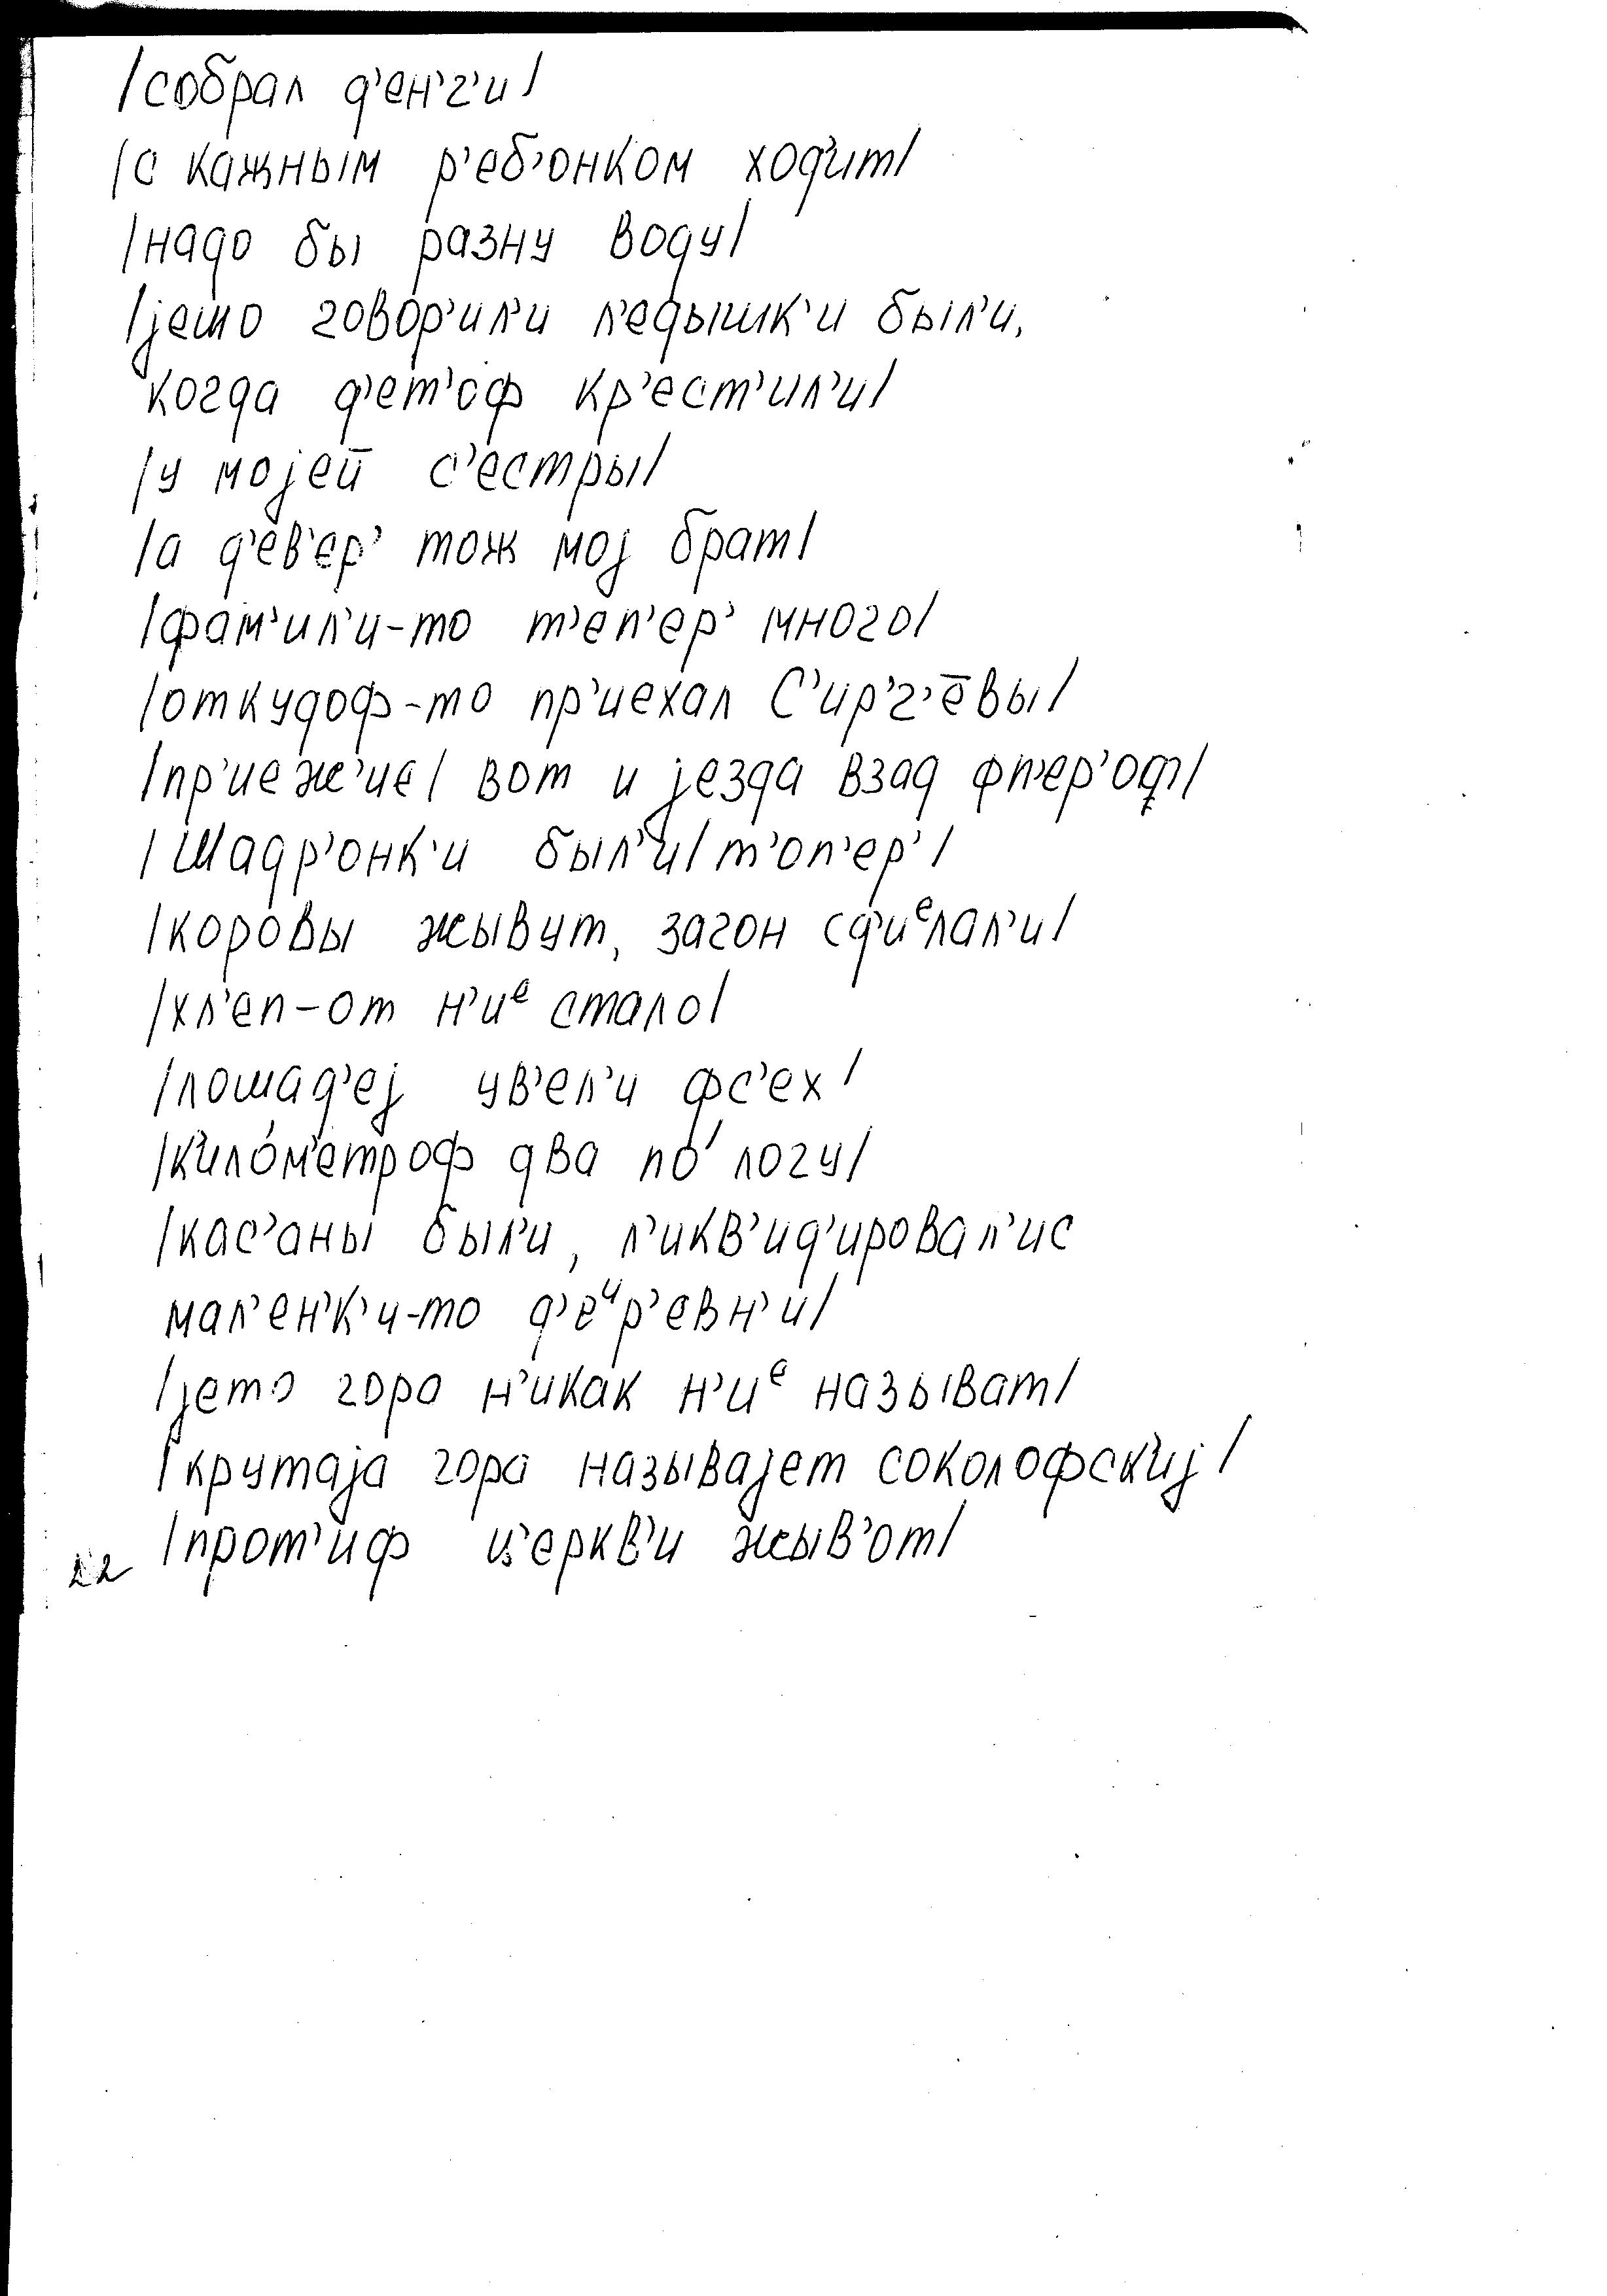 /собрал д'ен'г'и/
/с кажным р'еб'онком ход'ит/
/надо бы разну воду/
/јешо говор'ил'и л'едышк'и был'и,
когда д'ет'оф кр'ест'ил'и/
/у мојей с'естры/
/а д'ев'ер' тож мој брат/
/фам'ил'и-то т'еп'ер' много/
/откудоф-то пр'иехал С'ир'г'ēвы/
/пр'иеж'ие/ вот и језда взад фп'ер'оф/
/Шадр'онк'и был'и/ т'оп'ер'/
/коровы жывут, загон сд'иᵉлал'и/
/хл'еп-от н'иᵉ стало/
/лошад'еј ув'ел'и фс'ех/
/к'ило́м'етроф два по́ логу/
/кас'аны был'и, л'икв'ид'ировал'ис
мал'ен'к'и-то д'еᶸр'евн'и/
/јето гора н'икак н'иᵉ называт/
/крутаја гора называјет соколофск'иј/
/прот'иф ц'еркв'и жыв'от/
22